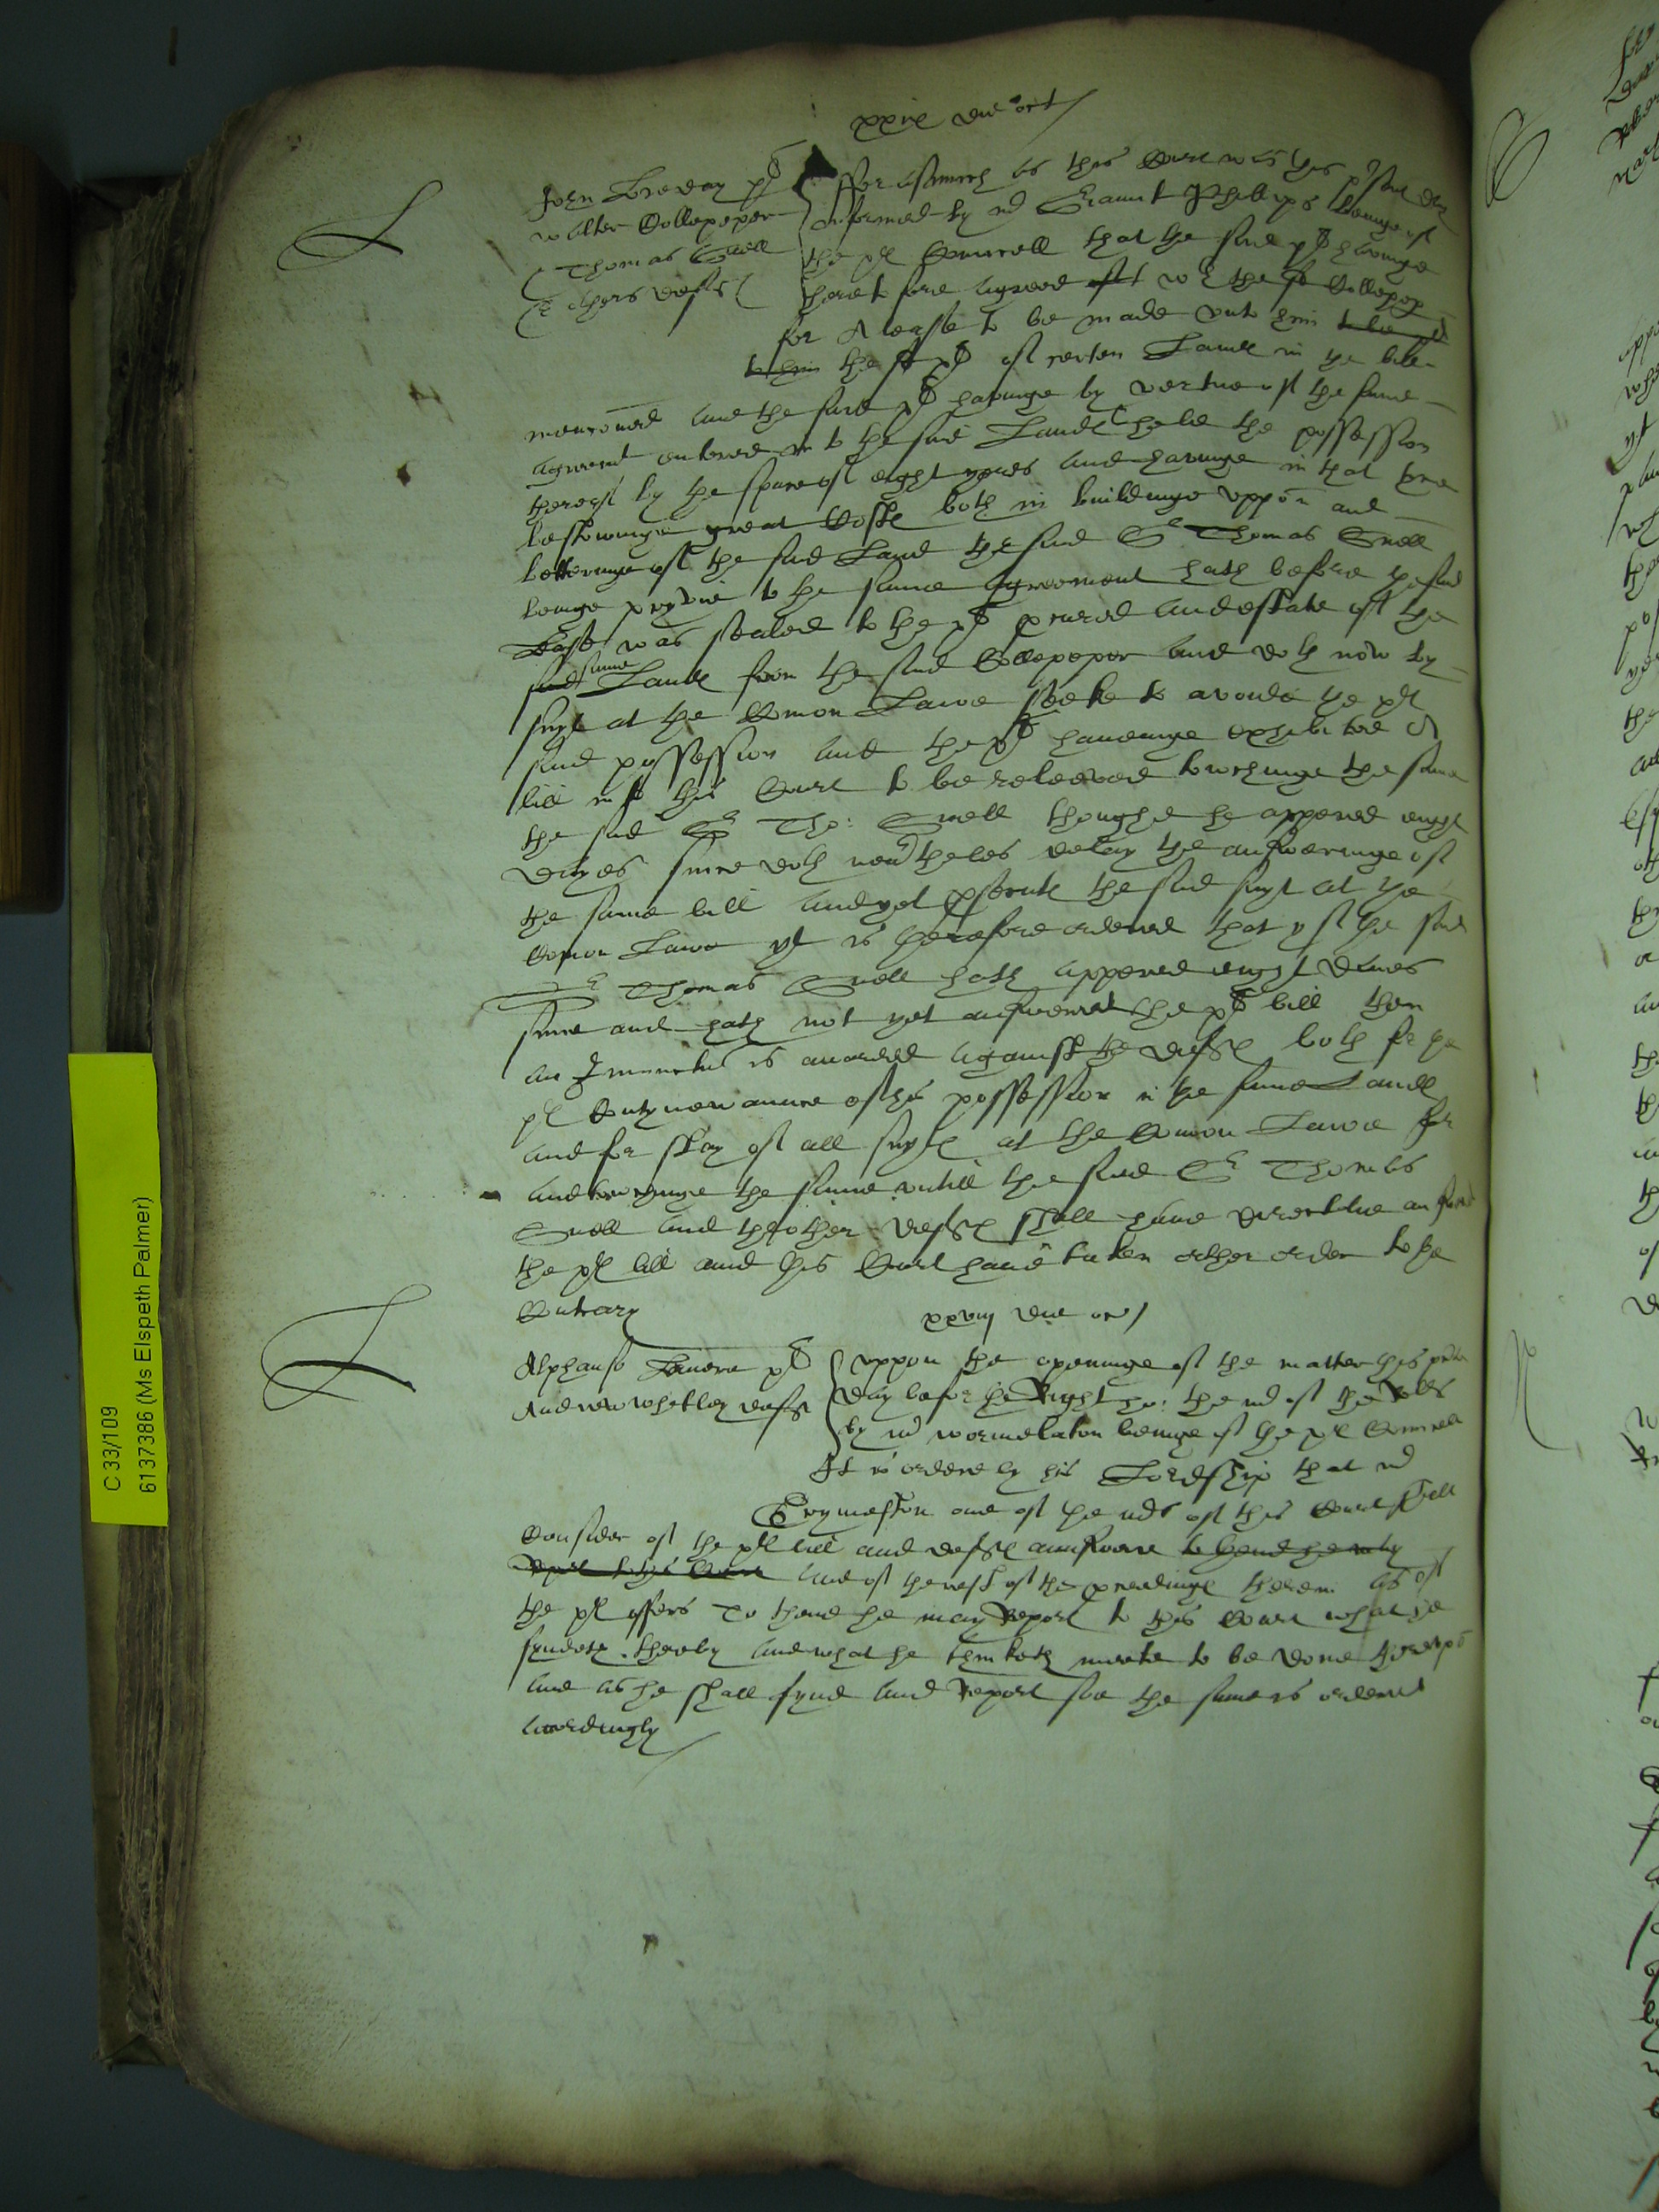 xxix die oct
L
John Loveday pl
Walter Collepeper
Thomas Snell
& others defts
fforasmuch as this Court was this present day
informed by mr Serjaunt Phillips beinge of
the pl Councell that the said pl havinge
heretofore agreed wth the Collepep
for A leasse to be made vnto him to be
to him the pl of certen Landes in the bill
mencioned and the said pl havinge by vertue of the same
agrement entered into the said Landes held the possession
thereof by the space of eight yeres and havinge in that tyme
bestowinge great Costes both in buildinge vppon and
betteringe of the said Land the said Sr Thomas Snell
beinge pryvie to the same agreement hath before the said
Lease was sealed to the pl procured an estate of the
said same Landes from the said Collepeper and doth now by
suyte at the Comon Lawe seeke to avoide the pl
said possession and the pl haveinge exhibited A
bill into this Court to be releeved towchinge the same
the said Sr Tho: Snell thoughe he appered eight
dayes since doth nevertheles delay the answeringe of
the same bill and yet prosecute the said suyt at the
Comon Lawe yt is therefore ordered that yf the said
Sr Thomas Snell hath appered eight daies
since and hath not yet answered the pl bill then
an Iniunction is awarded against the defts both for the
pl Contynewaunce of his possession in the same Landes
and for stay of all suytes at the Comon Lawe for
and towchinge the same vntill the said Sr Thomas
Snell and thother defts shall have directlie answered
the pl bill and this Court have taken other order to the
Contrary
xxviij die oct
L
Alphanso Lanere pl
Andrew Whetley deft
vppon the openinge of the matter this present
day before the Right ho: the mr of the Rolls
by mr Wormelaton beinge of the pl Councell
It is ordered by his Lordship that mr
one of the mrs of this Court shall
Consider of the pl bill and defts aunswere to thend he may
Report to this Court and of the rest of the proceedinges therein as of
the pl offers To thend he may Report to this Court what he
fyndeth thereby and what he thinketh meete to be done therevpon
and as he shall fynd and Report soe the same is ordered
accordingly
C 33/109
6137386 (Ms Elspeth Palmer)